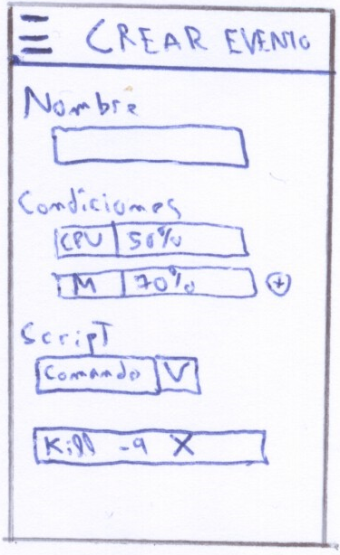 CREAR EVENTO
Nombre
Condiciones
CPU 50%
M 70% +
Script
Comando V
Kill -9 X